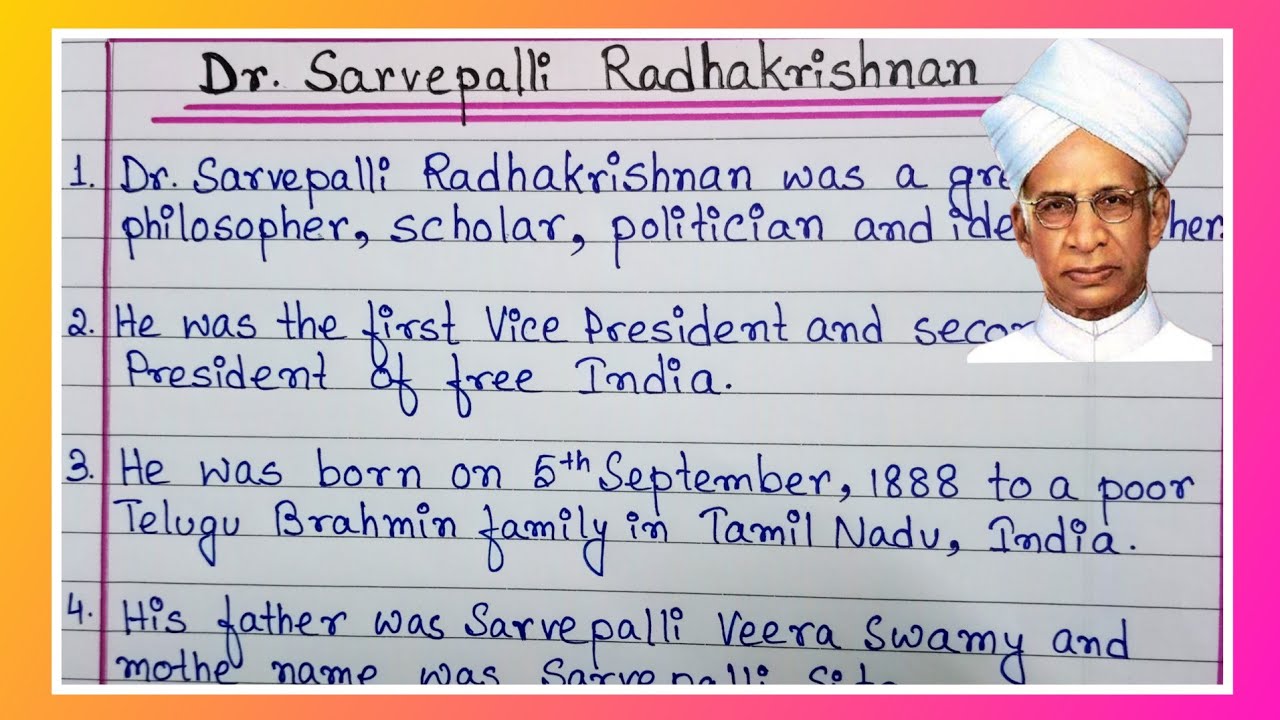 Dr. Sarvepalli Radhakrishnan
1. Dr. Sarvepalli Radhakrishnan was a
philosopher, scholar, politician and
2. He was the first Vice President and
President of free India.
3. He was born on 5th September, 1888 to a poor
Telugu Brahmin family in Tamil Nadu, India.
4. His father was Sarvepalli Veera Swamy and
mothe name was Sarvepalli